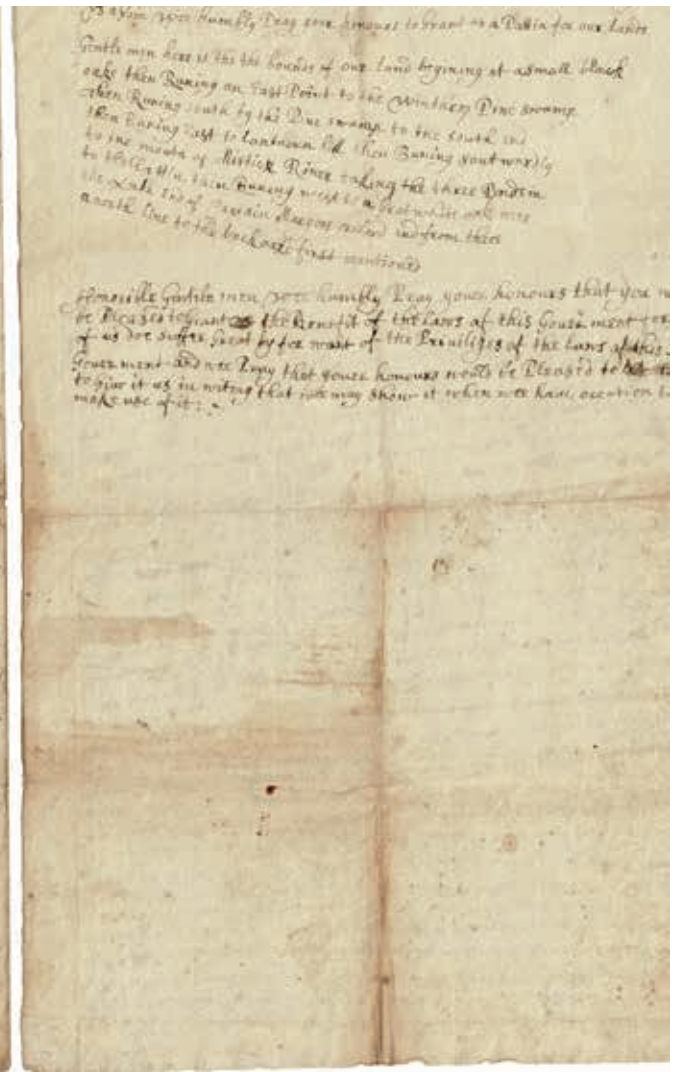 Againe wee humbly Pray youre honours to Grant us a Pattin for our lands
Gentle men here is the the bounds of our land begining at a small black
oake then Runing an East Point to the Winthrops Pine swamp
then Runing south by the Pine swamp to the south end
then Runing East to Lantourn hill then Runing southwardly
to the mouth of Mistick River taking the three Ponds in
to then Runing west to a Great white oak neer
the End of Captain Masons Island and from there
north line to the black oake first mentioned
Honorible Gentile men wee humbly Pray youre honours that you
be Pleased to Grant the benefit of the laws of this Gouerment for
of us doe suffer Great by for want of the Priuiliges of the laws of this
Gouerment and wee Pray that youre honours would be Pleased to
to give it us in writing that wee may show it when wee have occation to
make use of it: